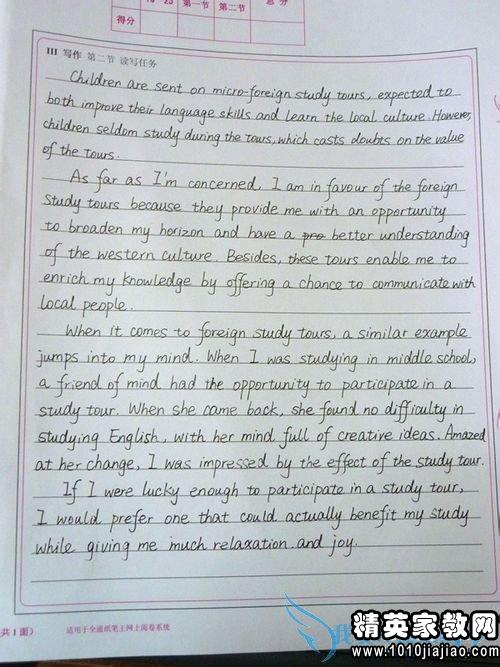 16-25 第一节 第二节 总分
得分
III 写作 第二节 读写任务
Children are sent on micro-foreign study tours, expected to
both improve their language skills and learn the local culture. However,
children seldom study during the tours, which casts doubts on the value
of the tours.
As far as I'm concerned, I am in favour of the foreign
study tours because they provide me with an opportunity
to broaden my horizon and have a pro better understanding
of the western culture. Besides, these tours enable me to
enrich my knowledge by offering a chance to communicate with
local people.
When it comes to foreign study tours, a similar example
jumps into my mind. When I was studying in middle school,
a friend of mind had the opportunity to participate in a
study tour. When she came back, she found no difficulty in
studying English, with her mind full of creative ideas. Amazed
at her change, I was impressed by the effect of the study tour.
If I were lucky enough to participate in a study tour,
I would prefer one that could actually benefit my study
while giving me much relaxation and joy.
共1面) 适用于全通纸笔王网上阅卷系统
精英家教网
www.1010jiajiao.com